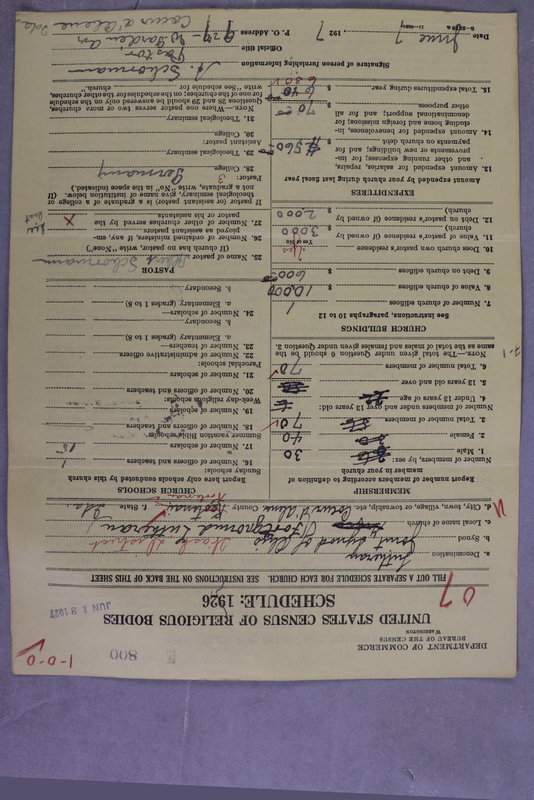 1-0-0
800
DEPARTMENT OF COMMERCE
BUREAU OF THE CENSUS
WASHINGTON
UNITED STATES CENSUS OF RELIGIOUS BODIES
SCHEDULE: 1926
JUN 13 1927
FILL OUT A SEPARATE SCHEDULE FOR EACH CHURCH. SEE INSTRUCTIONS ON THE BACK OF THIS SHEET
a. Denomination Lutheran
b. Synod Joint Synod of Ohio
c. Local name of church Lutheran
d. City, town, village, or township, etc. Coeur d'Alene County Kootenai State Ida.
MEMBERSHIP
Report number of members according to definition of
member in your church
Number of members, by sex:
1. Male 30
2. Female 40
3. Total number of members 70
Number of members under and over 13 years old:
4. Under 13 years of age
5. 13 years old and over
6. Total number of members 70
NOTE.—The total given under Question 6 should be the
same as the total of males and females given under Question 3.
CHURCH BUILDINGS
See instructions, paragraphs 10 to 12
7. Number of church edifices 1
8. Value of church edifices $ 10,000
9. Debt on church edifices $ 600
10. Does church own pastor's residence Yes
Yes or No
11. Value of pastor's residence (if owned by
church) $ 3000
12. Debt on pastor's residence (if owned by
church) $ 2,000
EXPENDITURES
Amount expended by your church during last fiscal year
13. Amount expended for salaries, repairs,
and other running expenses; for im-
provements or new buildings; and for
payments on church debt $ 560
14. Amount expended for benevolences, in-
cluding home and foreign missions; for
denominational support; and for all
other purposes $ 70
15. Total expenditures during year $ 630
CHURCH SCHOOLS
Report here only schools conducted by this church
Sunday schools:
16. Number of officers and teachers 1
17. Number of scholars 15
Summer vacation Bible schools:
18. Number of officers and teachers
19. Number of scholars
Week-day religious schools:
20. Number of officers and teachers
21. Number of scholars
Parochial schools:
22. Number of administrative officers
23. Number of teachers—
a. Elementary (grades 1 to 8)
b. Secondary
24. Number of scholars—
a. Elementary (grades 1 to 8)
b. Secondary
PASTOR
25. Name of pastor Schormann
(If church has no pastor, write "None")
26. Number of ordained ministers, if any, em-
ployed as assistant pastors
27. Number of other churches served by the
pastor or his assistants x
If pastor (or assistant pastor) is a graduate of a college or
theological seminary, give name of institution below. (If
not a graduate, write "No" in the space indicated.)
Pastor:
28. College Germany
29. Theological seminary
Assistant pastor:
30. College
31. Theological seminary
NOTE.—Where one pastor serves two or more churches,
Questions 28 and 29 should be answered only on the schedule
for one of the churches; on the schedules for the other churches,
write "See schedule for church."
Signature of person furnishing information Schormann
Official title Pastor
P. O. Address 929 - Garden Av
Coeur d'Alene Ida.
Date June 7, 1927